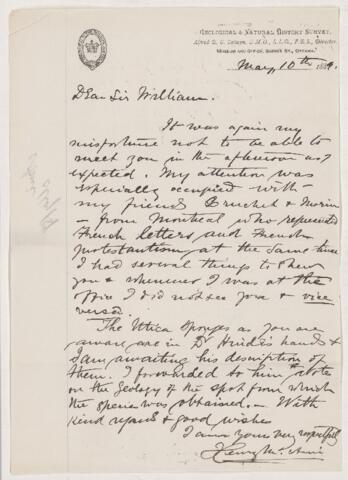 GEOLOGICAL & NATURAL HISTORY SURVEY.
Alfred R. C. Selwyn, C.M.G., L.L.D., F.R.S., Director
MUSEUM AND OFFICE, SUSSEX ST., OTTAWA.
May, 10th 1889.
Dear Sir William.
It was again my
misfortune not to be able to
meet you in the afternoon as I
expected. My attention was
especially occupied with
my friends Duclos & Morin
— from Montreal who represented
French letters and French
protestantism, at the same time
I had several things to shew
you & whenever I was at the
office I did not see you & vice
versâ.
The Utica sponges as you are
aware are in Dr Hinde's hands &
I am awaiting his description of
them. I forwarded to him note
on the geology of the spot from which
the species was obtained. — With
kind regards & good wishes
I am yours very respectfully
Henry M. Ami